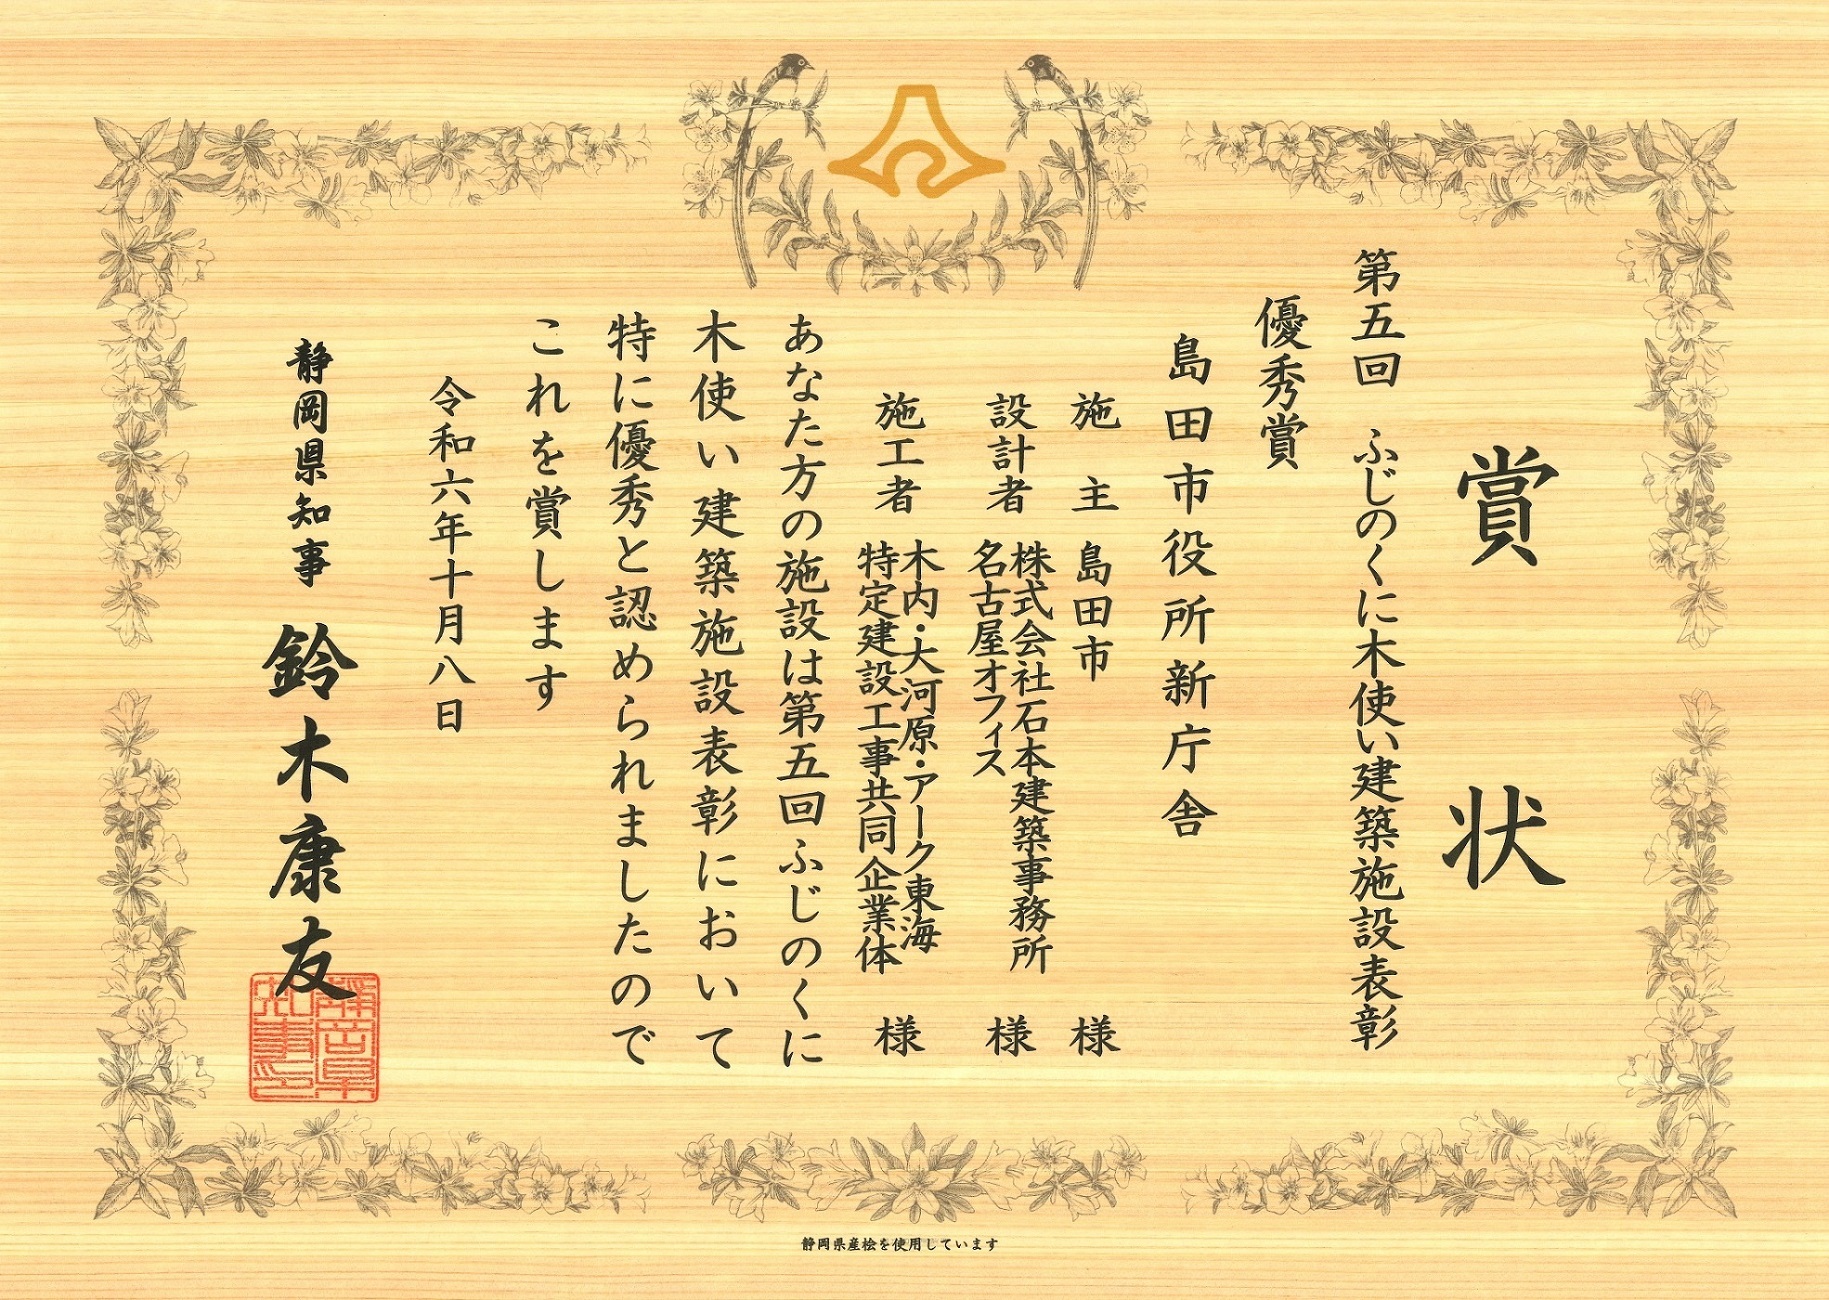 賞状
第五回　ふじのくに木使い建築施設表彰
優秀賞
島田市役所新庁舎
施　主　島田市　様
設計者　株式会社石本建築事務所
名古屋オフィス　様
施工者　木内・大河原・アーク東海
特定建設工事共同企業体　様
あなた方の施設は第五回ふじのくに
木使い建築施設表彰において
特に優秀と認められましたので
これを賞します
令和六年十月八日
静岡県知事　鈴木康友
静岡県知事之印
静岡県産桧を使用しています